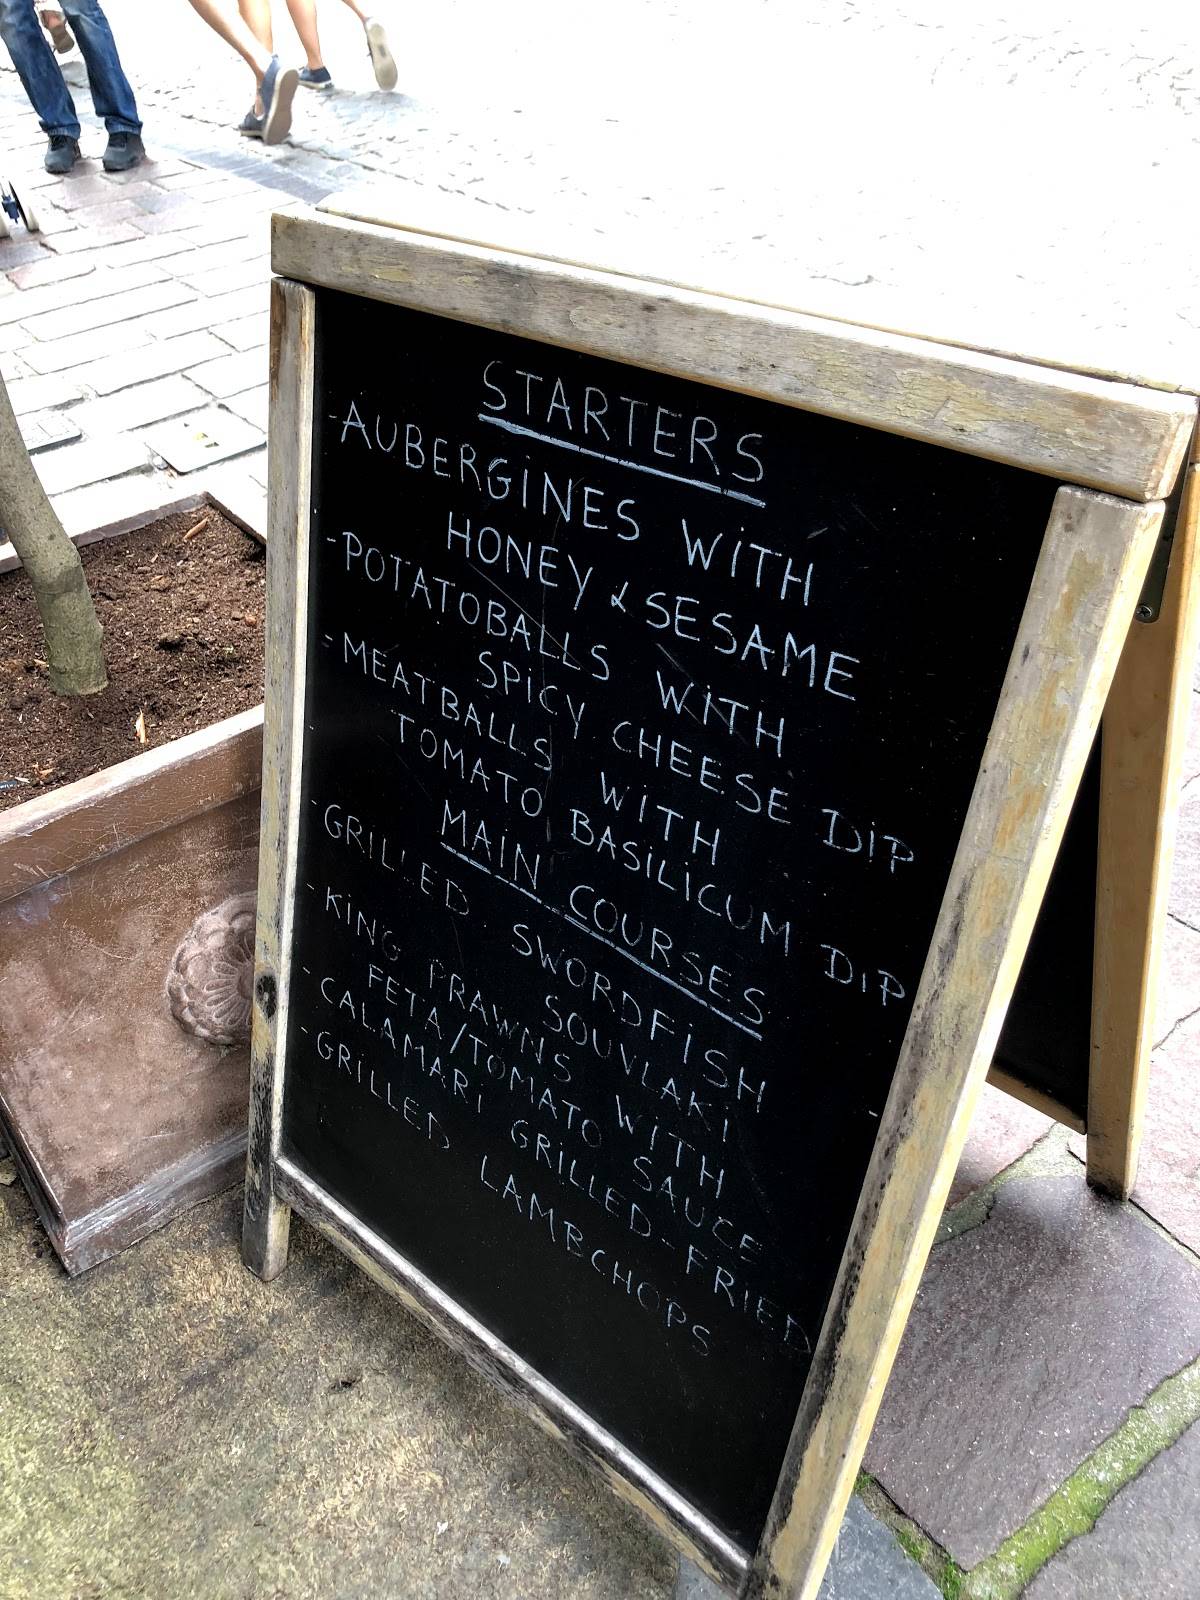 STARTERS
-AUBERGINES WITH
HONEY & SESAME
-POTATOBALLS WITH
SPICY CHEESE DIP
-MEATBALLS WITH
TOMATO BASILICUM DIP
MAIN COURSES
-GRILLED SWORDFISH
SOUVLAKI
-KING PRAWNS WITH
FETA/TOMATO SAUCE
-CALAMARI GRILLED-FRIED
-GRILLED LAMBCHOPS